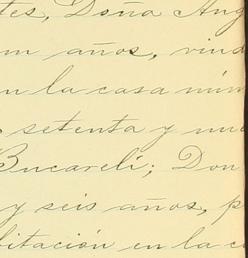 tes, Doña Ang
m años, viud
n la casa núm
setenta y nue
Bucareli; Don
y seis años, p
bitación en la c